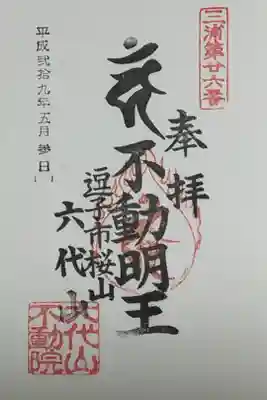 三浦第廿六番
奉拝
不動明王
逗子市桜山
六代山
六代山
不動院
平成弐拾九年五月参日